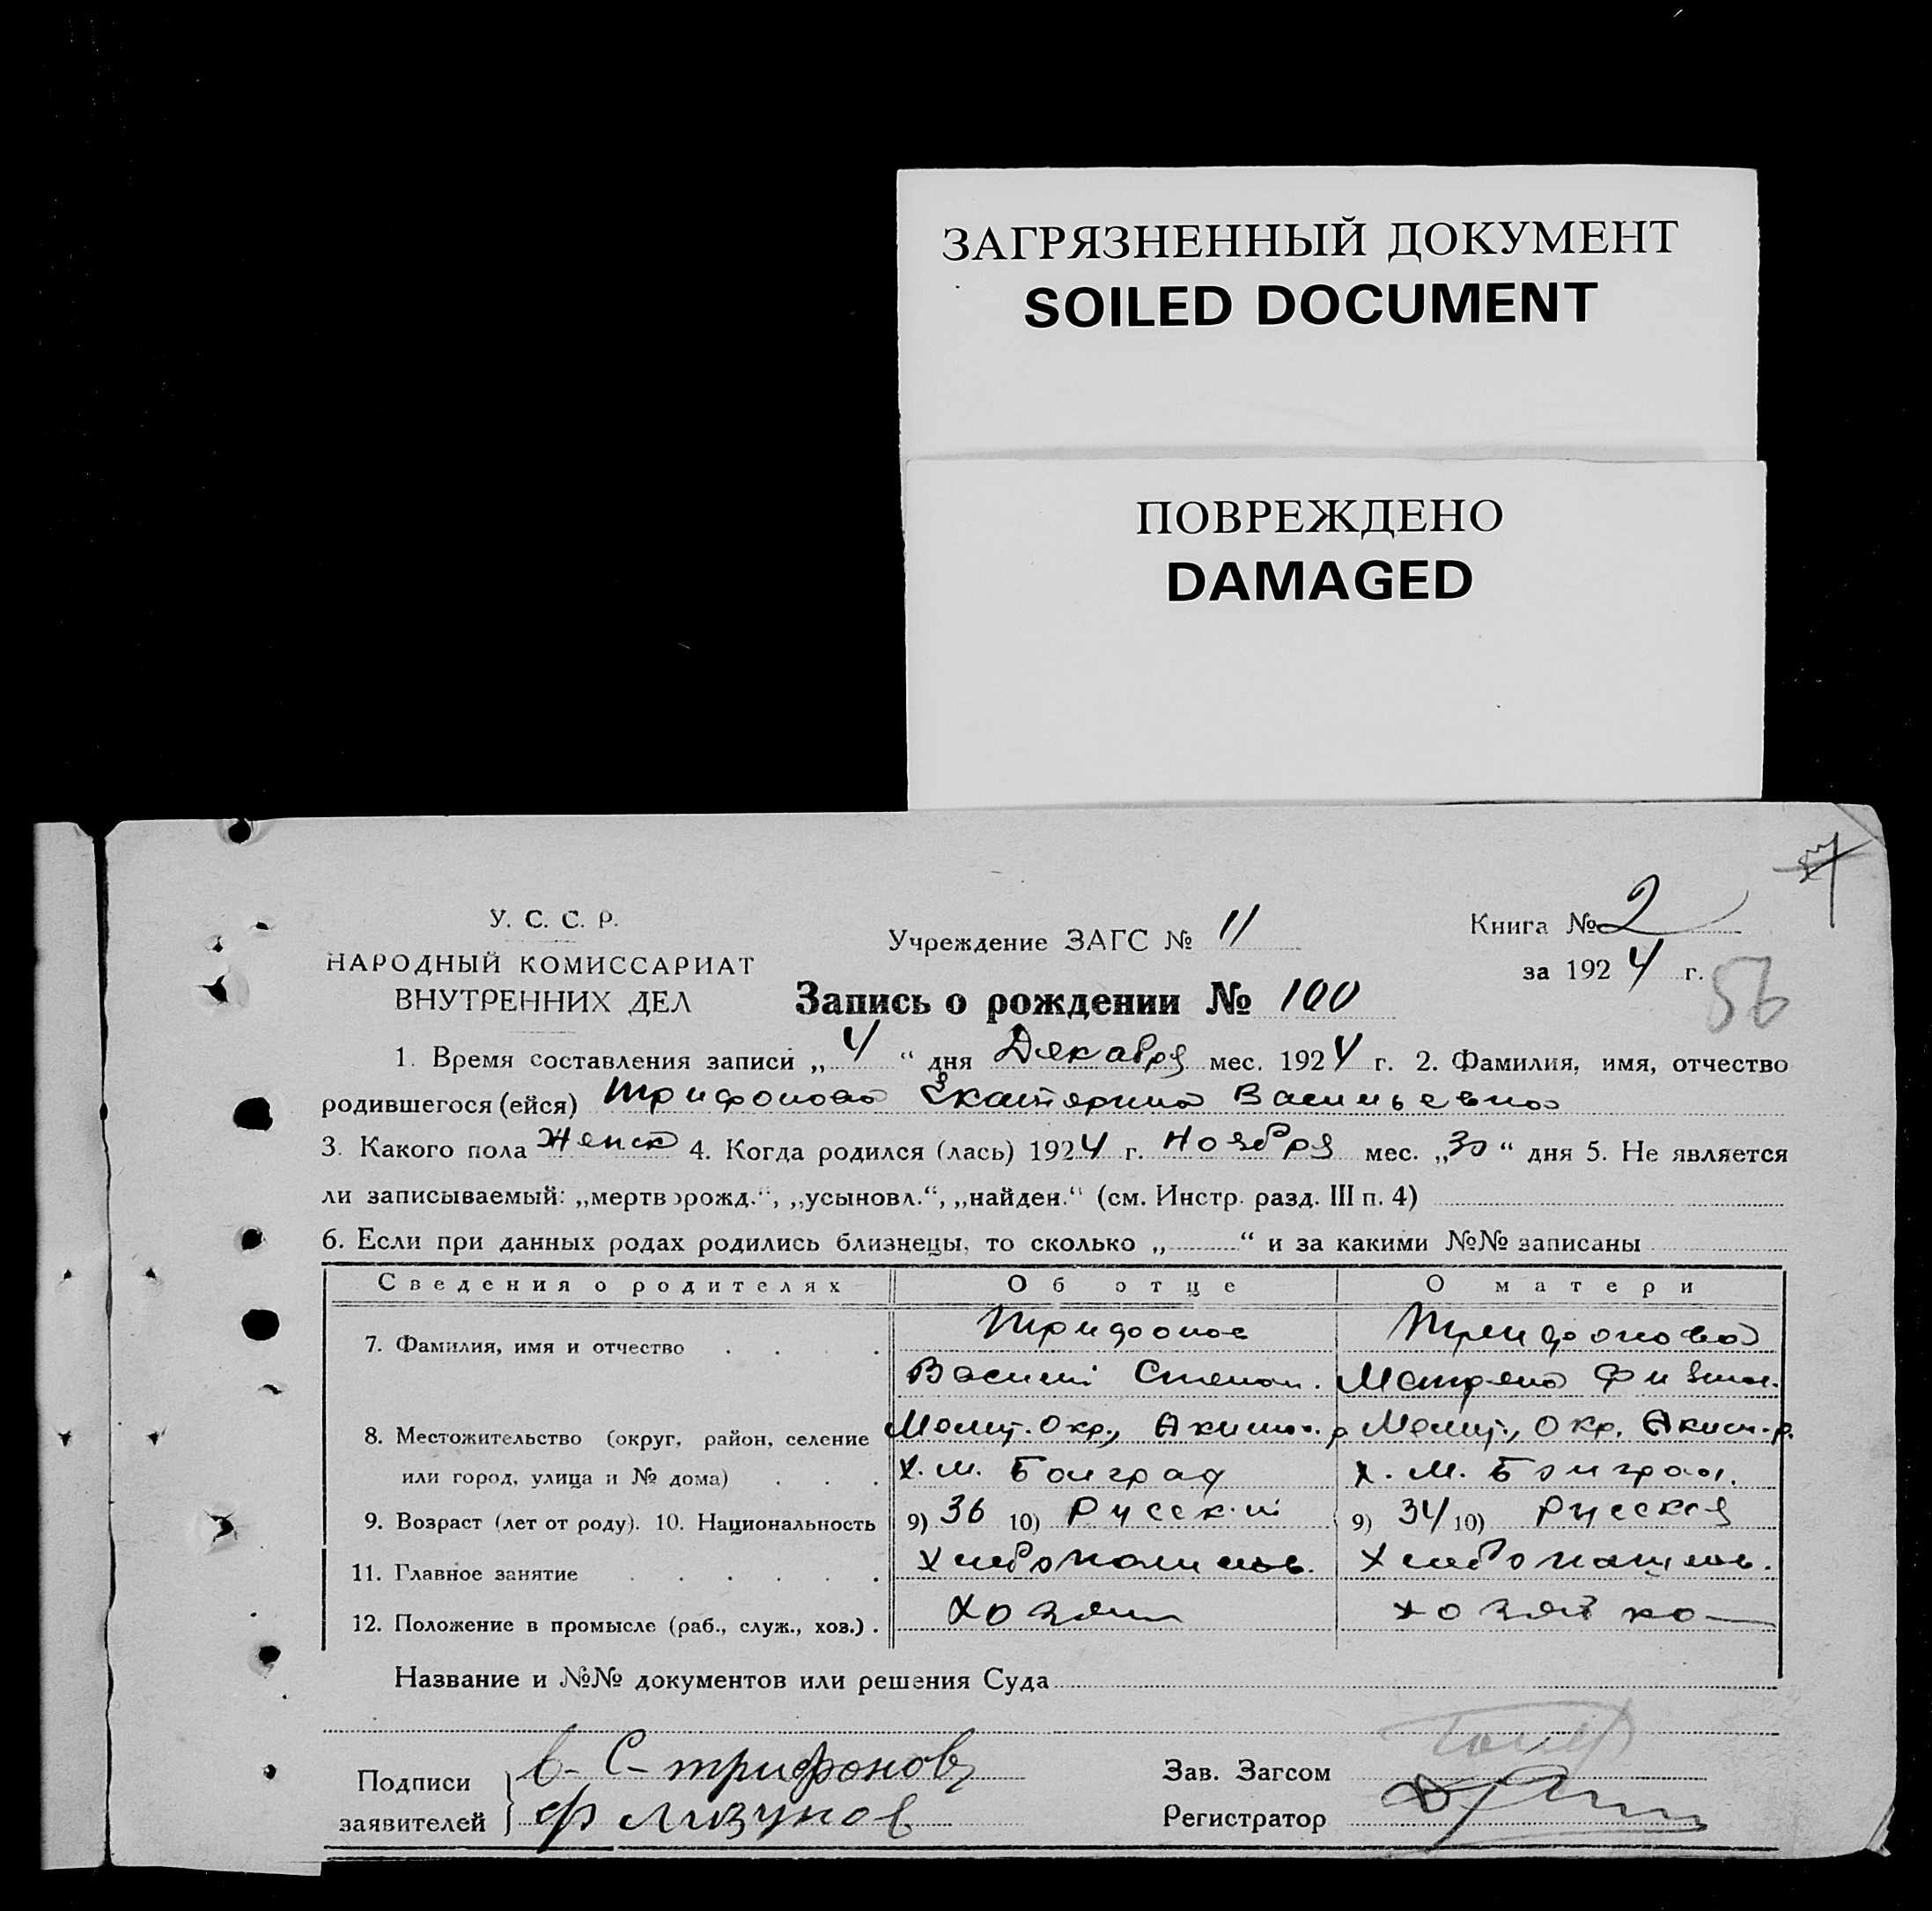 ЗАГРЯЗНЕННЫЙ ДОКУМЕНТ
SOILED DOCUMENT
ПОВРЕЖДЕНО
DAMAGED
У. С. С. Р.
НАРОДНЫЙ КОМИССАРИАТ
ВНУТРЕННИХ ДЕЛ
Учреждение ЗАГС № 11
Книга № 2
за 1924 г.
56
Запись о рождении № 100
1. Время составления записи „ 4 “ дня Декабря мес. 1924 г. 2. Фамилия, имя, отчество
родившегося (ейся) Трифонова Екатерина Васильевна
3. Какого пола Женск 4. Когда родился (лась) 1924 г. Ноября мес. „30“ дня 5. Не является
ли записываемый: „мертворожд.“, „усыновл.“, „найден.“ (см. Инстр. разд. III п. 4)
6. Если при данных родах родились близнецы, то сколько „ “ и за какими №№ записаны
Сведения о родителях Об отце О матери
7. Фамилия, имя и отчество Трифонов Трифонова
Васили Степан. Матрена
8. Местожительство (округ, район, селение Мелит. Окр., Аким. р Мелит., Окр. Аким. р.
или город, улица и № дома) х. М. Болград х. М. Болград.
9. Возраст (лет от роду). 10. Национальность 9) 36 10) Русский 9) 34 10) Русская
11. Главное занятие Хлебопашев. Хлебопашев.
12. Положение в промысле (раб., служ., хоз.) . хозяин хозяйка
Название и №№ документов или решения Суда
Подписи заявителей
В. С. Трифонов
Ф Лизунов
Зав. Загсом
Регистратор